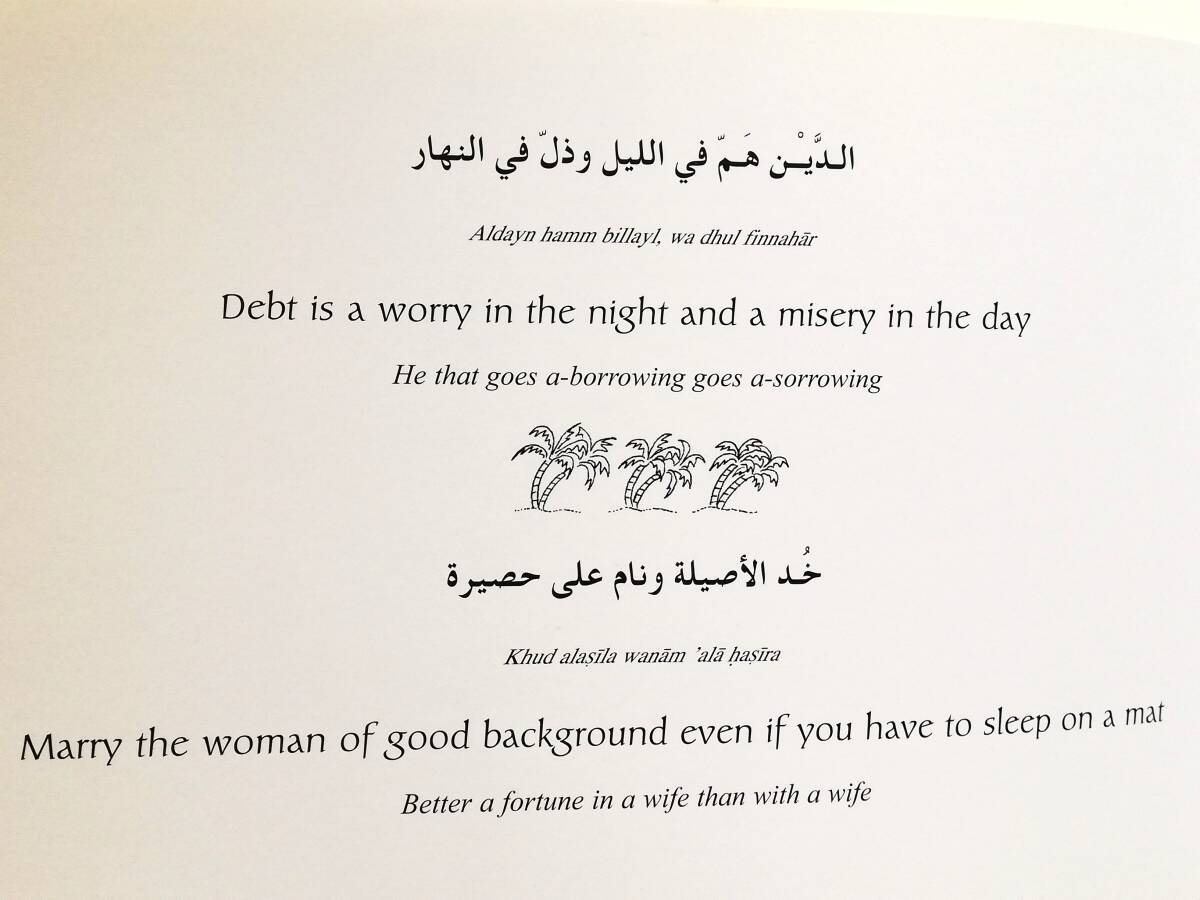 الـدَّيْـن هَـمّ في الليل وذلّ في النهار
Aldayn hamm billayl, wa dhul finnahār
Debt is a worry in the night and a misery in the day
He that goes a-borrowing goes a-sorrowing
خُـد الأصيلة ونام على حصيرة
Khud alaṣīla wanām ’alā ḥaṣīra
Marry the woman of good background even if you have to sleep on a mat
Better a fortune in a wife than with a wife